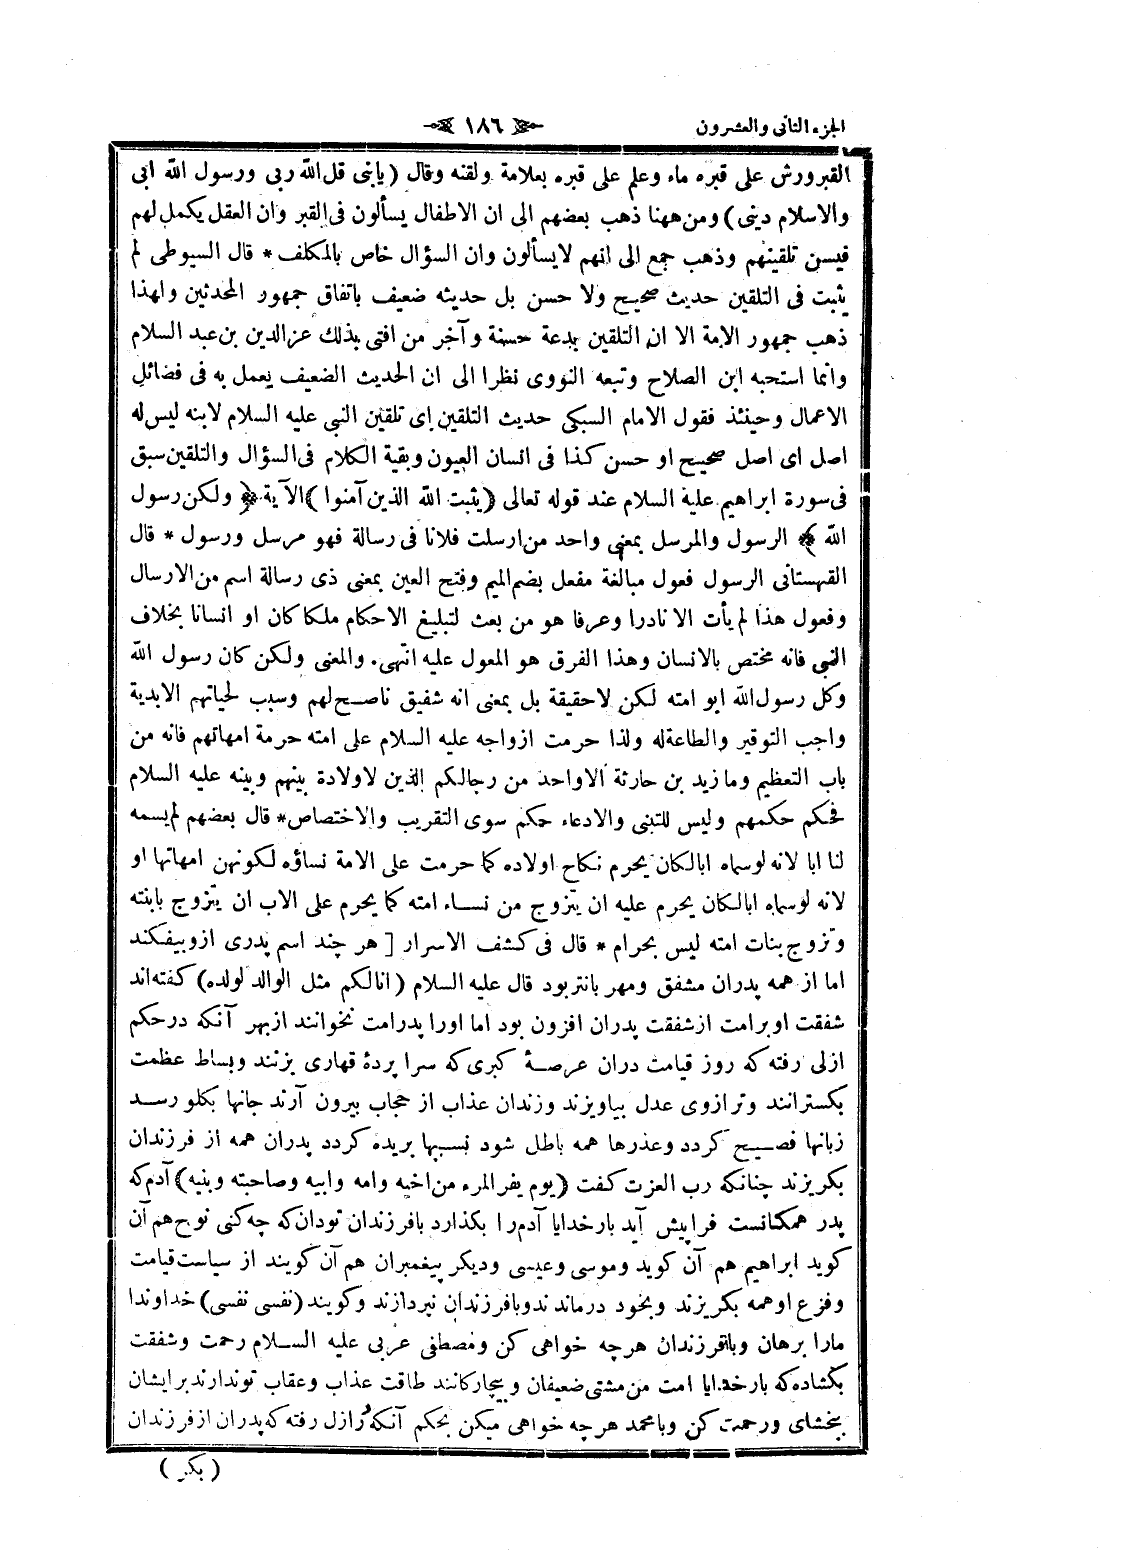 الجزء الثانى والعشرون ١٨٦
القبر ورش على قبره ماء وعلم على قبره بعلامة ولقنه وقال (يابنى قل الله ربى ورسول الله ابى
والاسلام دينى) ومن ههنا ذهب بعضهم الى ان الاطفال يسألون فى القبر وان العقل يكمل لهم
فيسن تلقينهم وذهب جمع الى انهم لا يسألون وان السؤال خاص بالمكلف * قال السيوطى لم
يثبت فى التلقين حديث صحيح ولا حسن بل حديثه ضعيف باتفاق جمهور المحدثين ولهذا
ذهب جمهور الامة الا ان التلقين بدعة حسنة وآخر من افتى بذلك عزالدين بن عبد السلام
وانما استحبه ابن الصلاح وتبعه النووى نظرا الى ان الحديث الضعيف يعمل به فى فضائل
الاعمال وحينئذ فقول الامام السبكى حديث التلقين اى تلقين النبى عليه السلام لابنه ليس له
اصل اى اصل صحيح او حسن كذا فى انسان العيون وبقية الكلام فى السؤال والتلقين سبق
فى سورة ابراهيم علية السلام عند قوله تعالى (يثبت الله الذين آمنوا) الآية ﴿ ولكن رسول
الله ﴾ الرسول والمرسل بمعنى واحد من ارسلت فلانا فى رسالة فهو مرسل ورسول * قال
القهستانى الرسول فعول مبالغة مفعل بضم الميم وفتح العين بمعنى ذى رسالة اسم من الارسال
وفعول هذا لم يأت الا نادرا وعرفا هو من بعث لتبليغ الاحكام ملكا كان او انسانا بخلاف
النبى فانه مختص بالانسان وهذا الفرق هو المعول عليه انتهى. والمعنى ولكن كان رسول الله
وكل رسول الله ابو امته لكن لا حقيقة بل بمعنى انه شفيق ناصح لهم وسبب لحياتهم الابدية
واجب التوقير والطاعة له ولذا حرمت ازواجه عليه السلام على امته حرمة امهاتهم فانه من
باب التعظيم وما زيد بن حارثة الا واحد من رجالكم الذين لا ولادة بينهم وبينه عليه السلام
فحكمه حكمهم وليس للتبنى والادعاء حكم سوى التقريب والاختصاص * قال بعضهم لم يسمه
لنا ابا لانه لو سماه ابا لكان يحرم نكاح اولاده كما حرمت على الامة نساؤه لكونهن امهاتها او
لانه لو سماه ابا لكان يحرم عليه ان يتزوج من نساء امته كما يحرم على الاب ان يتزوج بابنته
وتزوج بنات امته ليس بحرام * قال فى كشف الاسرار [ هر چند اسم پدرى ازو بيفكند
اما از همه پدران مشفق ومهربانتر بود قال عليه السلام (انا لكم مثل الوالد لولده) كفته اند
شفقت او بر امت از شفقت پدران افزون بود اما او را پدر امت نخوانند از بهر آنكه در حكم
ازلى رفته كه روز قيامت دران عرصهٔ كبرى كه سرا پردهٔ قهارى بزنند وبساط عظمت
بكسترانند وترازوى عدل بياويزند وزندان عذاب از حجاب بيرون آرند جانها بكلو رسد
زبانها فصيح كردد وعذرها همه باطل شود نسبها بريده كردد پدران همه از فرزندان
بكريزند چنانكه رب العزت كفت (يوم يفر المرء من اخيه وامه وابيه وصاحبته وبنيه) آدم كه
پدر همكانست فراپيش آيد بارخدايا آدم را بكذارد بافرزندان تو دان كه چه كنى نوح هم آن
كويد ابراهيم هم آن كويد وموسى وعيسى وديكر پيغمبران هم آن كويند از سياست قيامت
وفزع او همه بكريزند وبخود درمانند وبا فرزندان نپردازند وكويند (نفسى نفسى) خداوندا
مارا برهان وبافرزندان هرچه خواهى كن ومصطفى عربى عليه السلام رحمت وشفقت
بكشاده كه بار خدايا امت من مشتى ضعيفان وبيچاركانند طاقت عذاب وعقاب تو ندارند برايشان
ببخشاى ورحمت كن وبا محمد هرچه خواهى ميكن بحكم آنكه در ازل رفته كه پدران از فرزندان
( بكر )